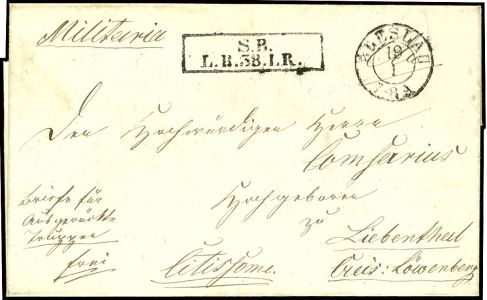 Militaria
S.B.
L.B.38.I.R.
BRESLAU
19
1
Den Hochwürdigen Herrn
Comsarius
Hochgeboren
zu
Liebenthal
Creis: Löwenberg
Briefe für
Ausgerückte
Truppen
frei
Citissime.